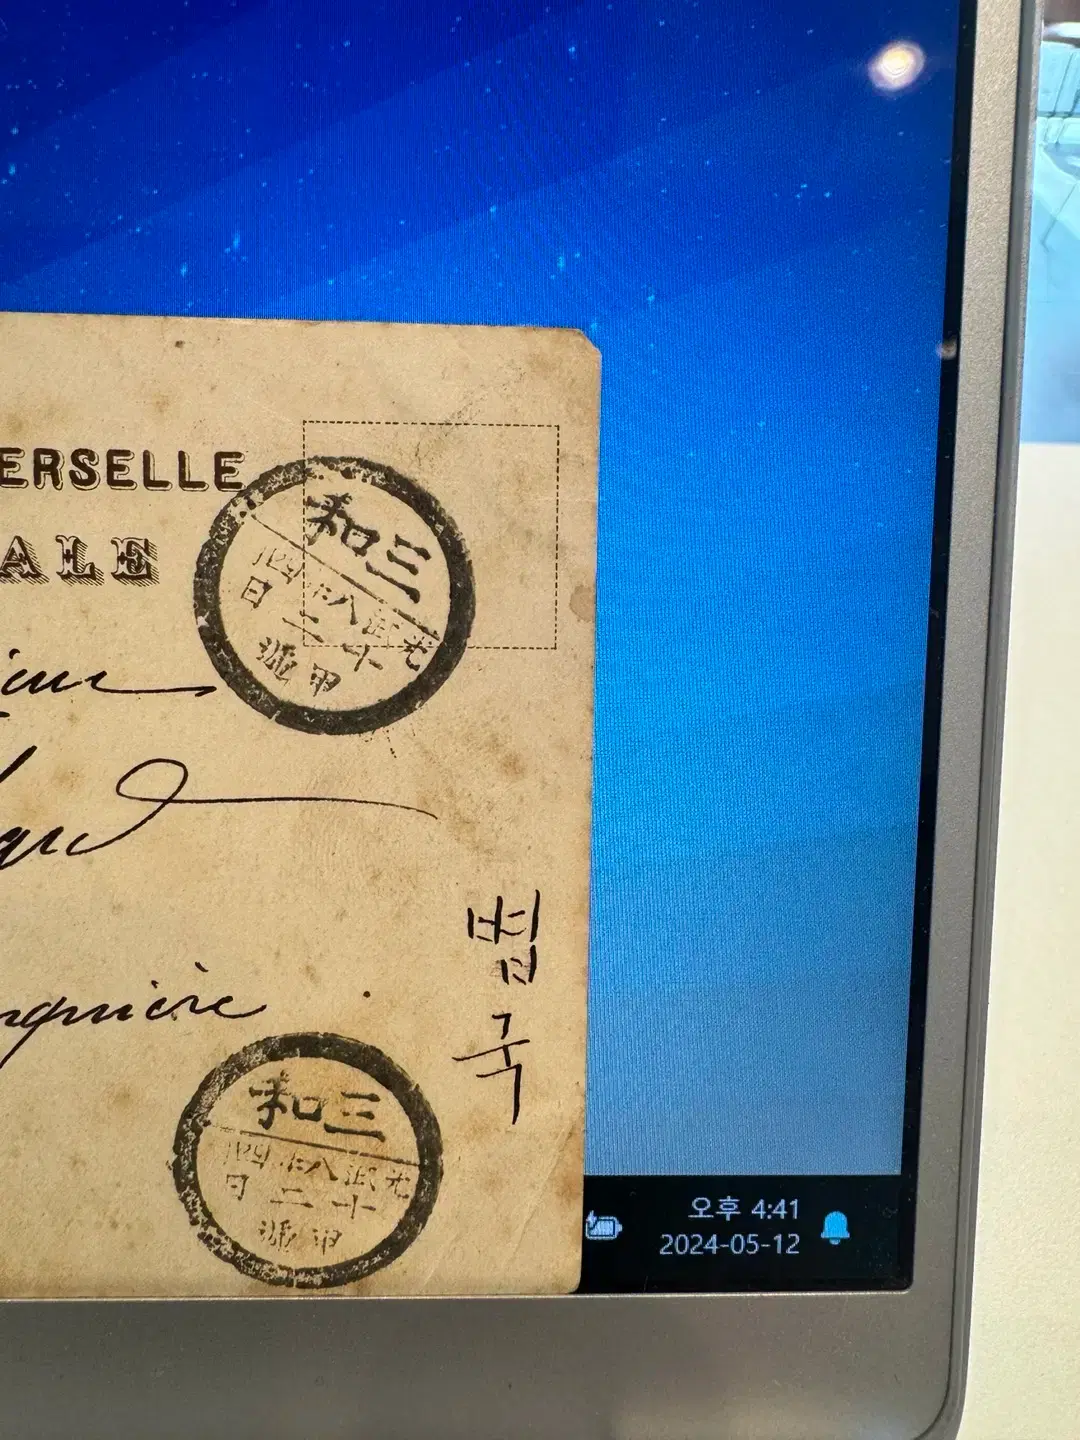 ERSELLE
ALE
三和
光武八年四月
十二日
甲號
법
국
三和
光武八年四月
十二日
甲號
오후 4:41
2024-05-12